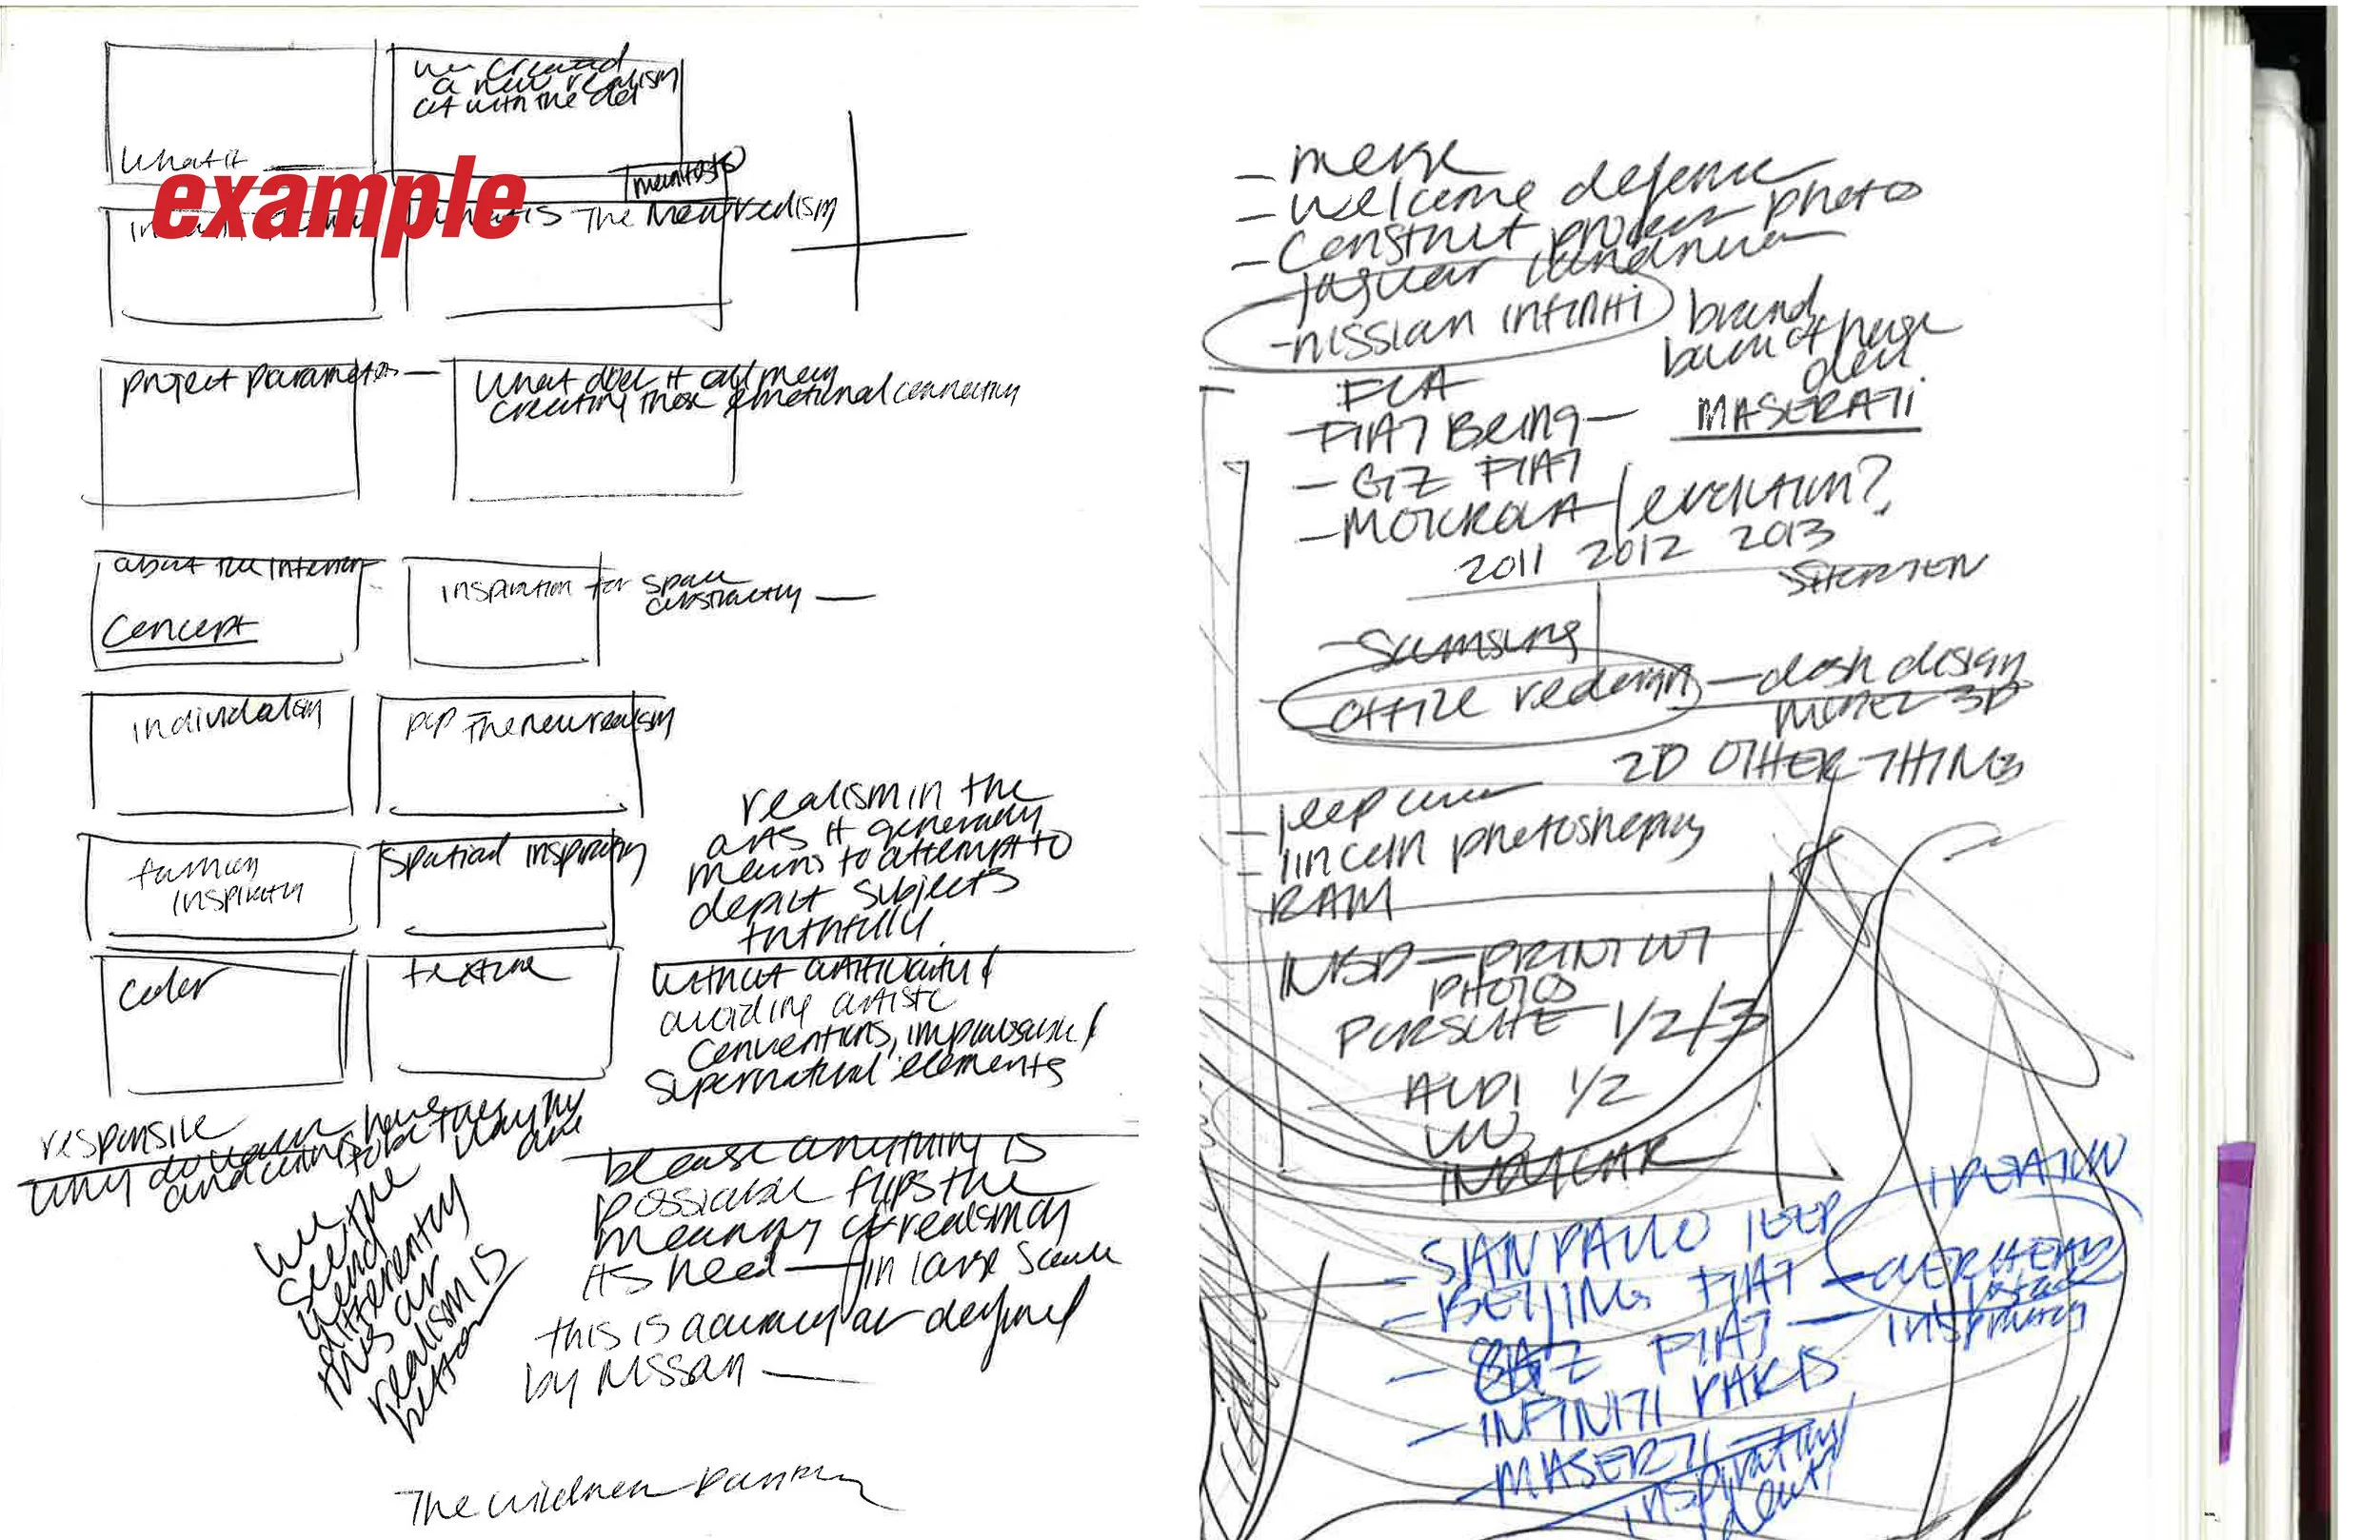 we created
a new realism
out with the old
What if
example
manifesto
what is The New realism
project parameters
What does it all mean
creating those emotional connection
about the interior
Concept
inspiration for space
abstractly
individalism
pop The new realism
fashion
inspiration
spatial inspiration
color
texture
realism in the
arts it generally
means to attempt to
depict subjects
truthfully
without artificiality &
avoiding artistic
conventions, implausible &
supernatural elements
responsive
why do
and
have
to be the way they
are
we
see the
world
differently
this our
realism is
better
because anything is
possible flips the
meaning of realism on
its head — in large scale
this is accuracy as defined
by Nissan —
The
- merge
- welcome defence
- Construct process photo
- jaguar landrover
- nissian infiniti
brand
FCA
- FIAT Being -
MASERATI
- GZ FIAT
- MOTOROLA / evolution?
2011 2012 2013
SHORTEN
- Samsung
office redesign - dash design
3D
2D OTHER THINGS
- jeep
- lincoln photoshoping
RAM
INSD - PRINT OUT
PHOTOS
PURSUITE 1/2/3
AUDI 1/2
VW
- SAN PAULO JEEP
- BEIJING FIAT - OVERHEAD
- GZ FIAT - inspiration
- INFINITI PARIS
- MASERTI
inspiration